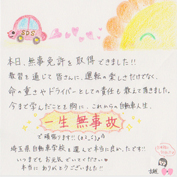 本日、無事免許を取得できました!!
教習を通じて皆さんに、運転の楽しさだけでなく、
命の重さやドライバーとしての責任も教えて頂きました。
今まで学んだことを胸に、これからの自動車人生、
一生無事故
で頑張ります!!
埼玉県自動車学校を選んで本当に良かったです!!
いつまでもお元気でいてください
本当にありがとうございました!!